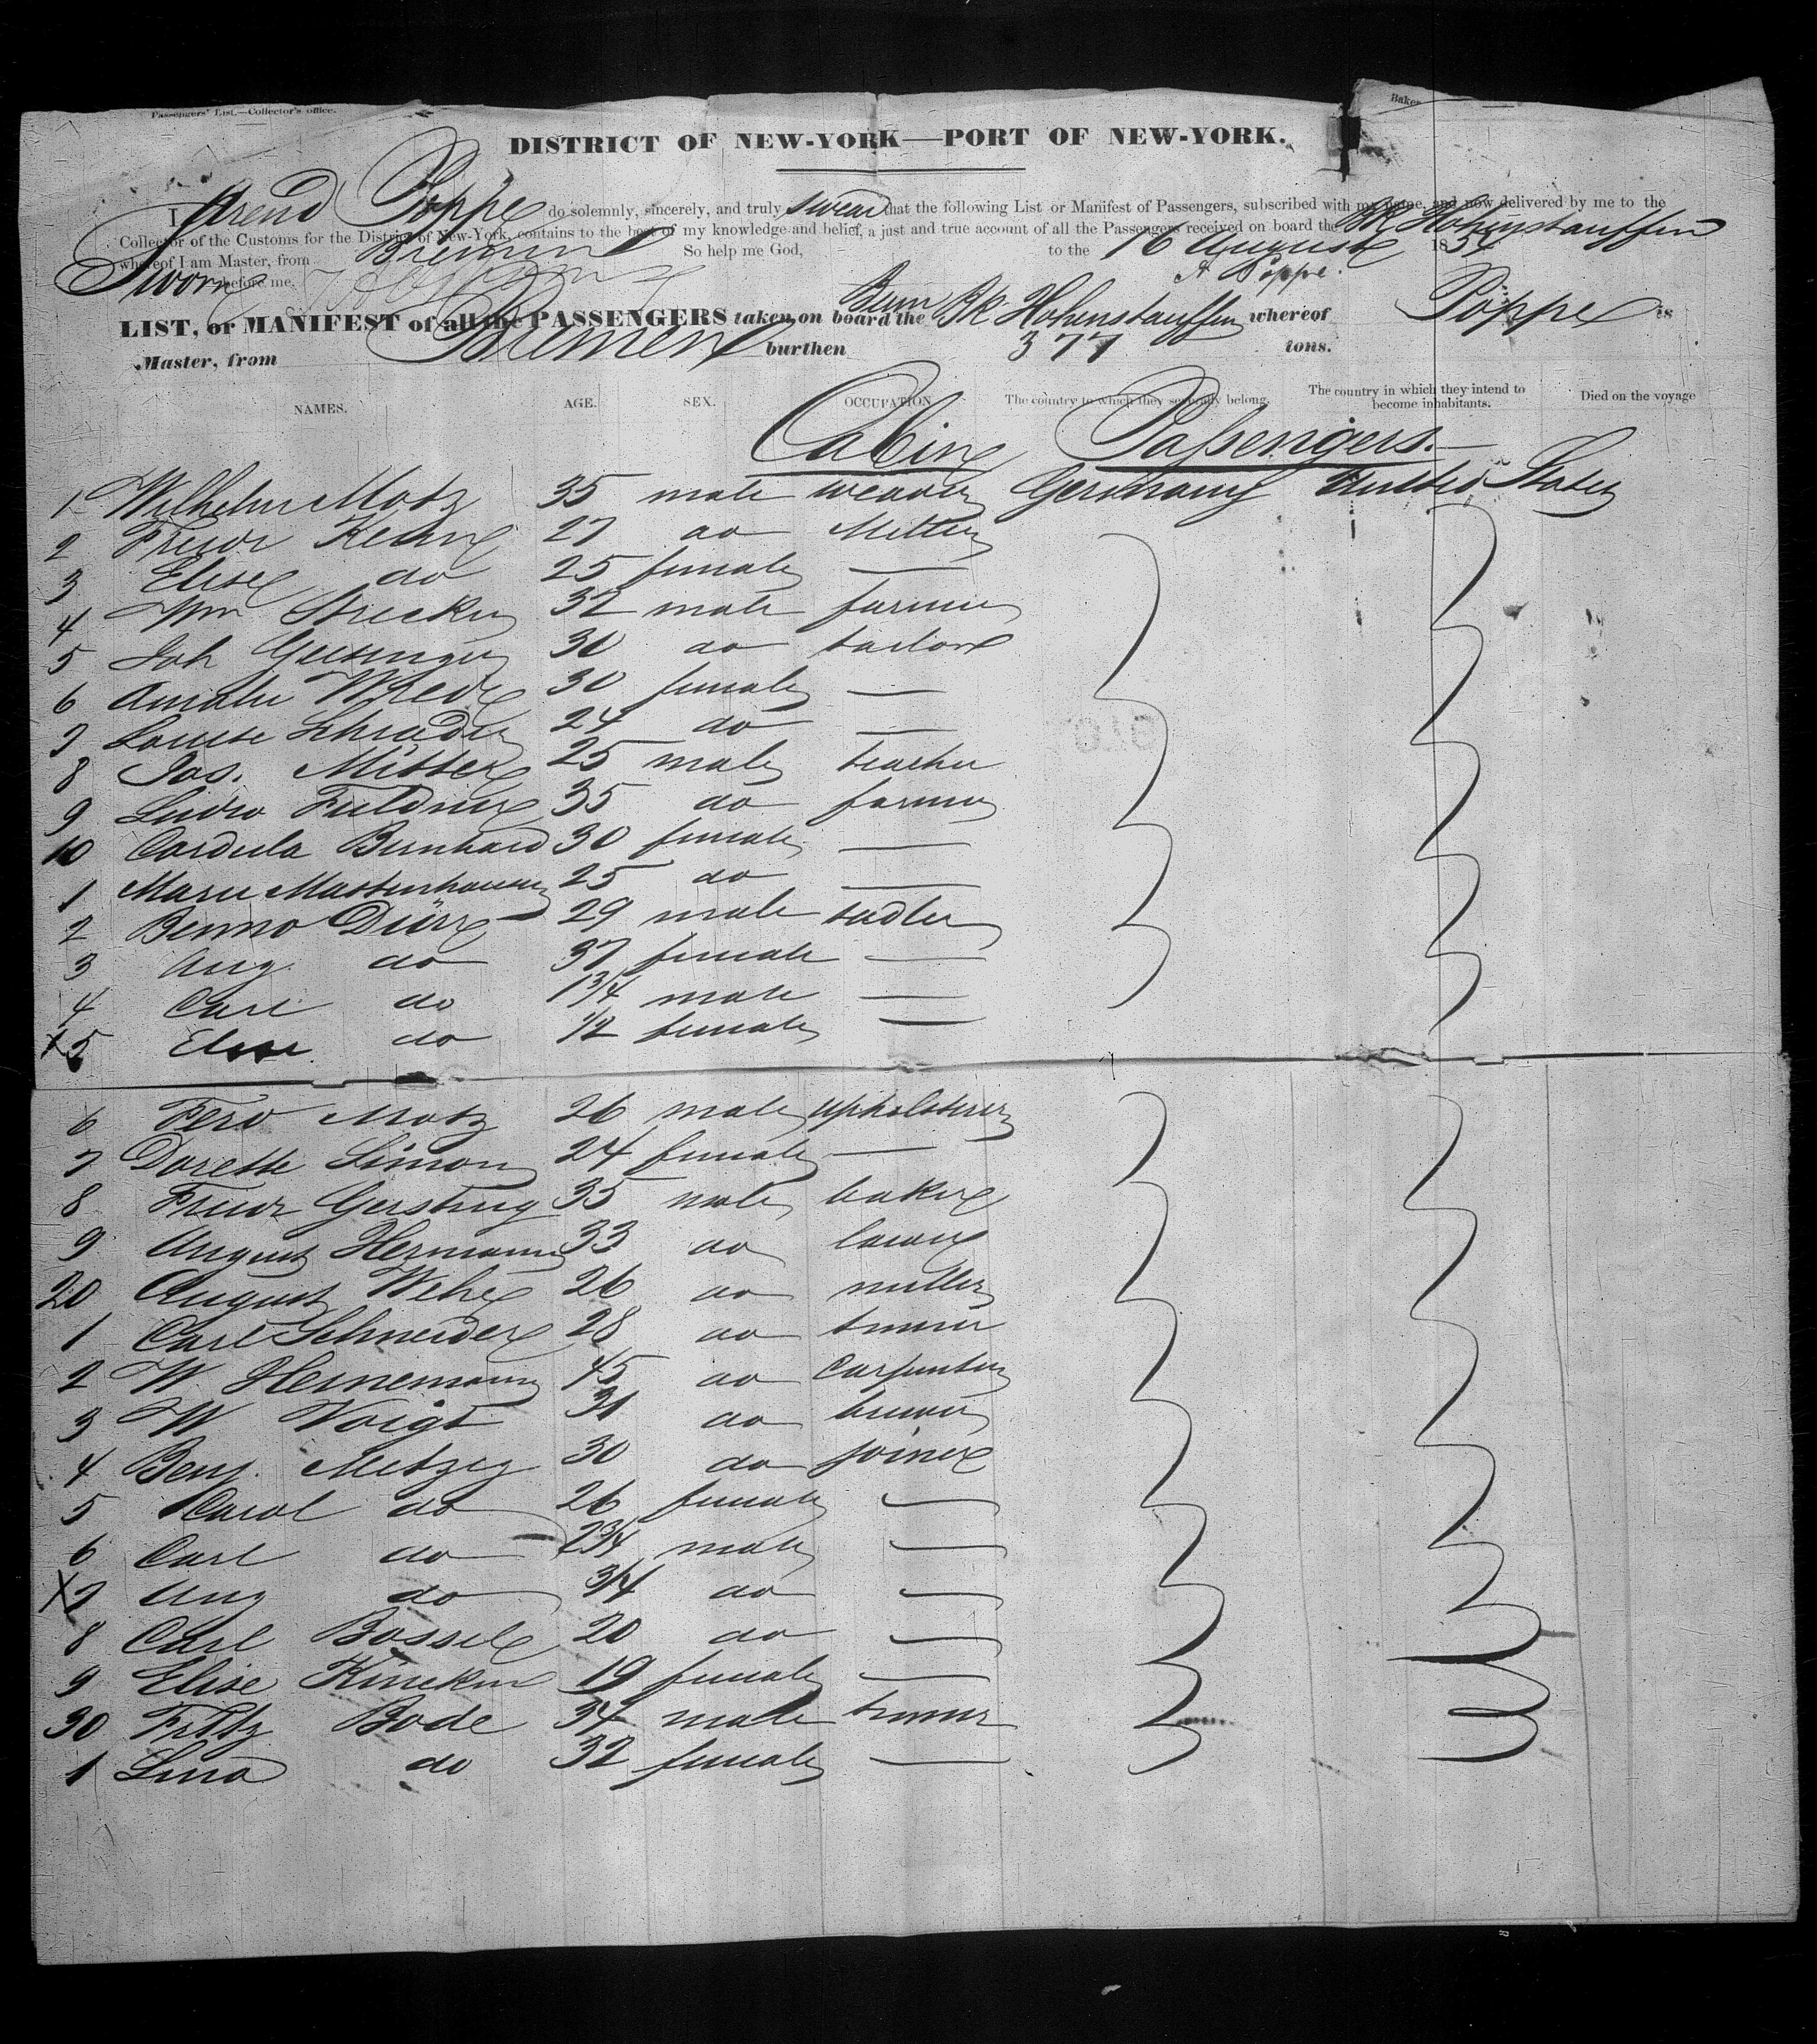 Passengers' List.—Collector's office.
Baker
DISTRICT OF NEW-YORK—PORT OF NEW-YORK.
I, Arend Poppe do solemnly, sincerely, and truly swear that the following List or Manifest of Passengers, subscribed with my name, and now delivered by me to the
Collector of the Customs for the District of New-York, contains to the best of my knowledge and belief, a just and true account of all the Passengers received on board the BK Hohenstauffen
whereof I am Master, from Bremen So help me God,
Sworn to the 16 August 1854
before me, A Poppe.
LIST, or MANIFEST of all the PASSENGERS taken on board the Brem BK Hohenstauffen whereof Poppe is
Master, from Bremen burthen 377 tons.
NAMES. AGE. SEX. OCCUPATION The country to which they severally belong. The country in which they intend to become inhabitants. Died on the voyage
Cabin Passengers.
1 Wilhelm Motz 35 male weaver Germany United States
2 Friedr 27 do Miller
3 Elise do 25 female —
4 Wm Strecker 32 male farmer
5 Joh 30 do tailor
6 Amalie Wrede 30 female —
7 Louise Schrader 24 do —
8 Jos. 25 male teacher
9 Ludw 35 do farmer
10 Cordula Bernhard 30 female —
1 Marie 25 do —
2 Benno Dürr 29 male sadler
3 Aug. do 37 female —
4 Carl do 1 3/4 male —
x5 Elise do 1/2 female —
6 Ferd Motz 26 male upholsterer
7 Dorette Simon 24 female —
8 Friedr Gersting 35 male baker
9 August Hermann 33 do
20 August Wehe 26 do miller
1 Carl Schneider 28 do
2 W Heinemann 45 do Carpenter
3 W Voigt 31 do brewer
4 Benj. Metzig 30 do joiner
5 Carol do 26 female —
6 Carl do 2 3/4 male —
x7 Aug do 3/4 do —
8 Carl Bossel 20 do —
9 Elise 19 female —
30 Fritz Bode 34 male
1 Lina do 32 female —